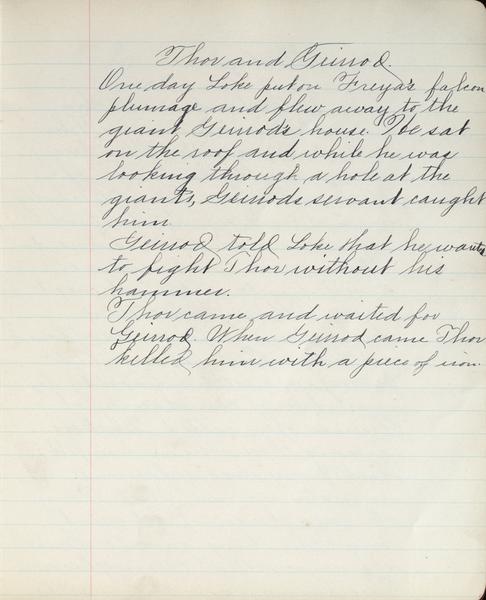 Thor and Geirrod.
One day Loke put on Freya's falcon
plumage and flew away to the
giant Geirrod's house. He sat
on the roof and while he was
looking through a hole at the
giants, Geirrods servant caught
him.
Geirrod told Loke that he wants
to fight Thor without his
hammer.
Thor came and waited for
Geirrod. When Geirrod came Thor
killed him with a piece of iron.